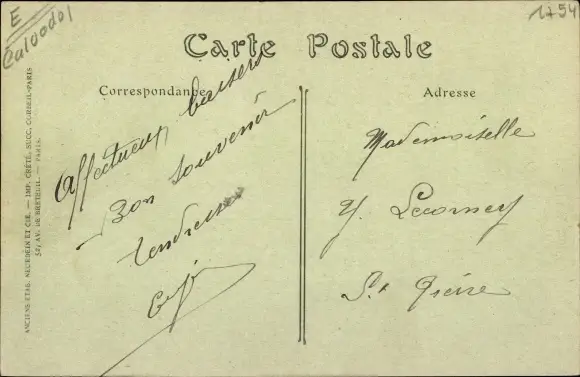 E
Calvados
1754
Carte Postale
Correspondance
Adresse
Affectueux baisers
Bon souvenir
Tendresses
Mademoiselle
Y. Lecorney
St Pierre
ANCIENS ETAB. NEURDEIN ET CIE. — IMP. CRÉTÉ, SUCC. CORBEIL-PARIS
52, AV. DE BRETEUIL. — PARIS.